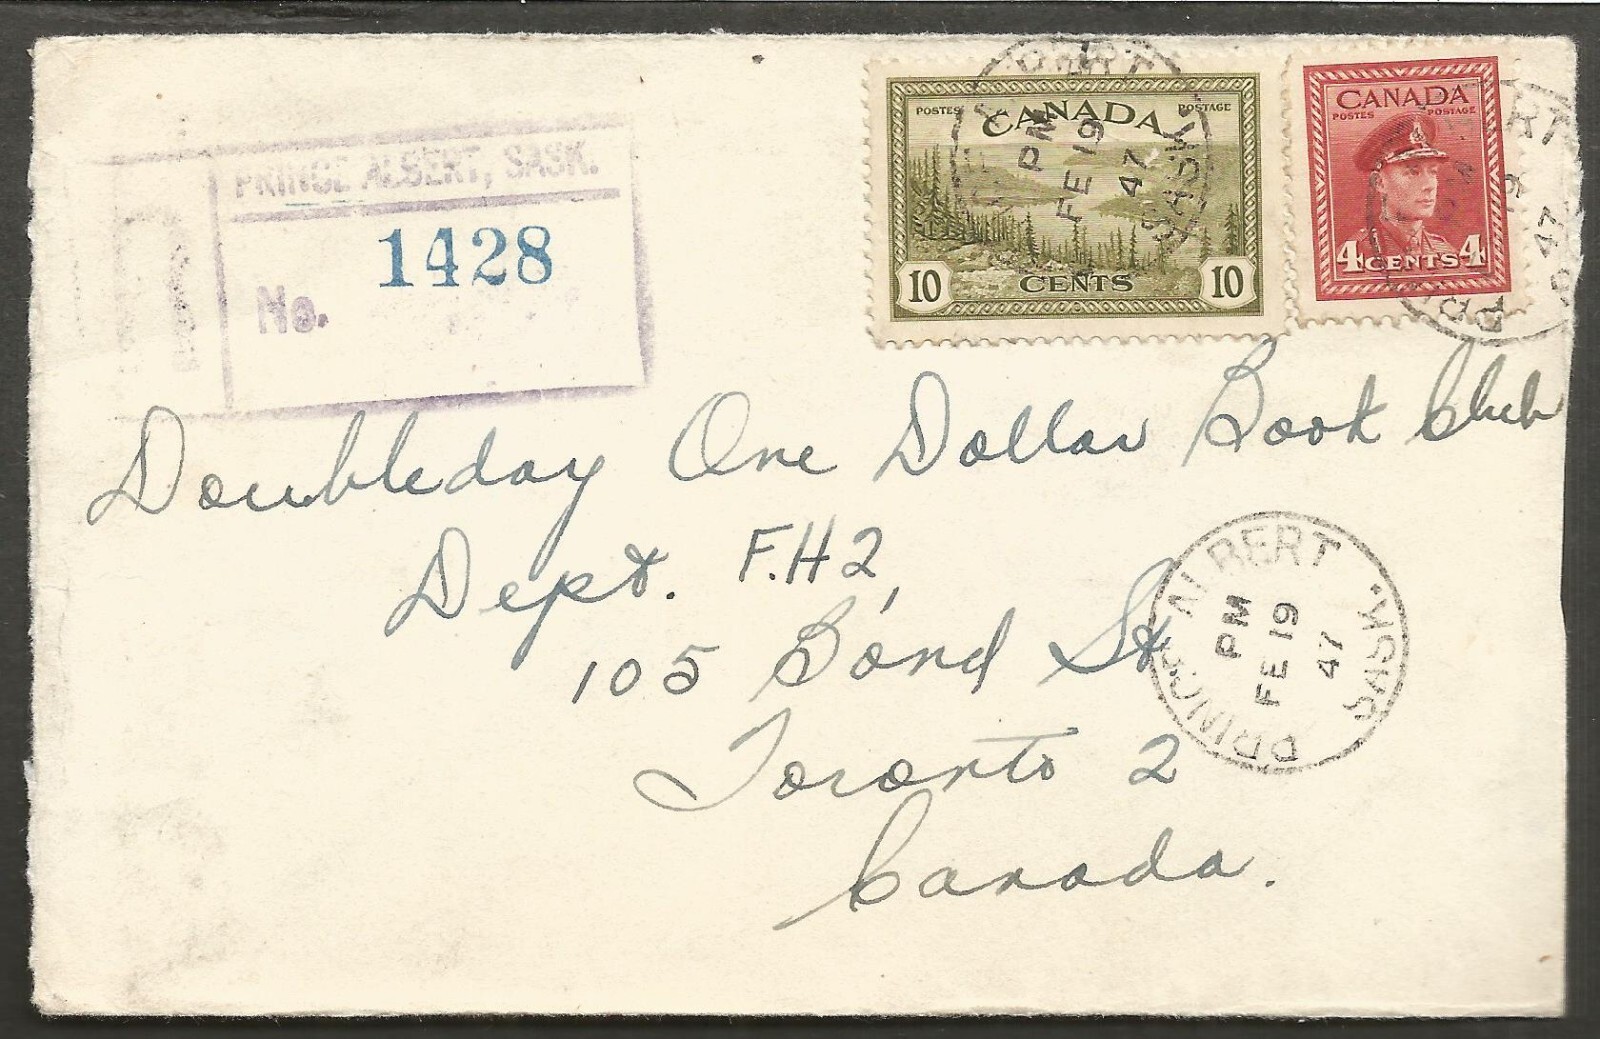 PRINCE ALBERT, SASK.
1428
No.
POSTES CANADA POSTAGE
10 CENTS 10
CANADA
POSTES POSTAGE
4 CENTS 4
ALBERT SASK.
PM
FE 19
47
19
47
Doubleday One Dollar Book Club
Dept. F.H2,
105 Bond St
Toronto 2
Canada.
PRINCE ALBERT SASK.
PM
FE 19
47